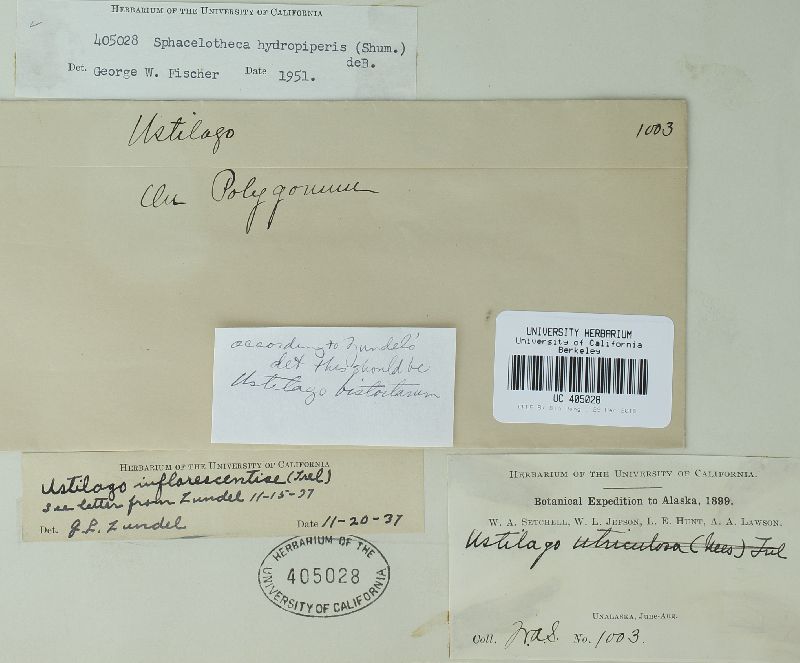 HERBARIUM OF THE UNIVERSITY OF CALIFORNIA
405028 Sphacelotheca hydropiperis (Shum.)
deB.
Det. George W. Fischer Date 1951.
Ustilago 1003
On Polygonum
according to Zundel's
det this should be
Ustilago bistortarum
UNIVERSITY HERBARIUM
University of California
Berkeley
UC 405028
HERBARIUM OF THE UNIVERSITY OF CALIFORNIA
Ustilago inflorescentise (Trel)
see letter from Zundel 11-15-37
Det. G.L. Zundel Date 11-20-37
HERBARIUM OF THE
405028
UNIVERSITY OF CALIFORNIA
HERBARIUM OF THE UNIVERSITY OF CALIFORNIA.
Botanical Expedition to Alaska, 1899.
W. A. SETCHELL, W. L. JEPSON, L. E. HUNT, A. A. LAWSON.
Ustilago utriculosa (Nees) Tul
UNALASKA, June-Aug.
Coll. WAS. No. 1003.